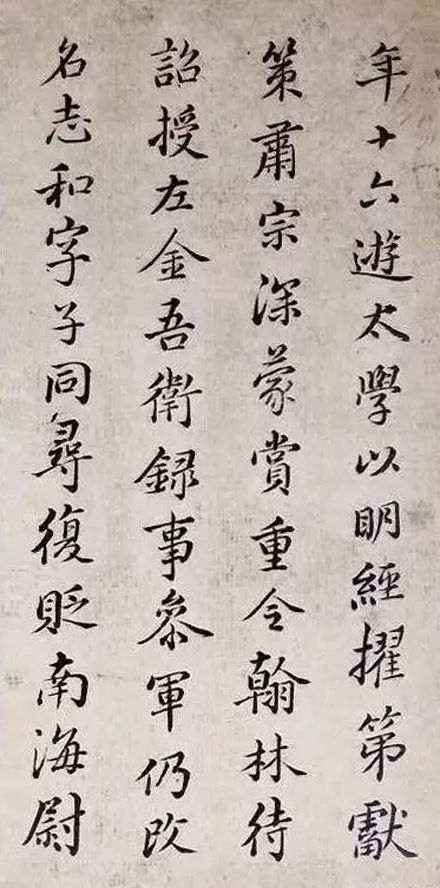 年十六遊太學以明經擢第獻
策肅宗深蒙賞重令翰林待
詔授左金吾衛録事參軍仍改
名志和字子同尋復貶南海尉